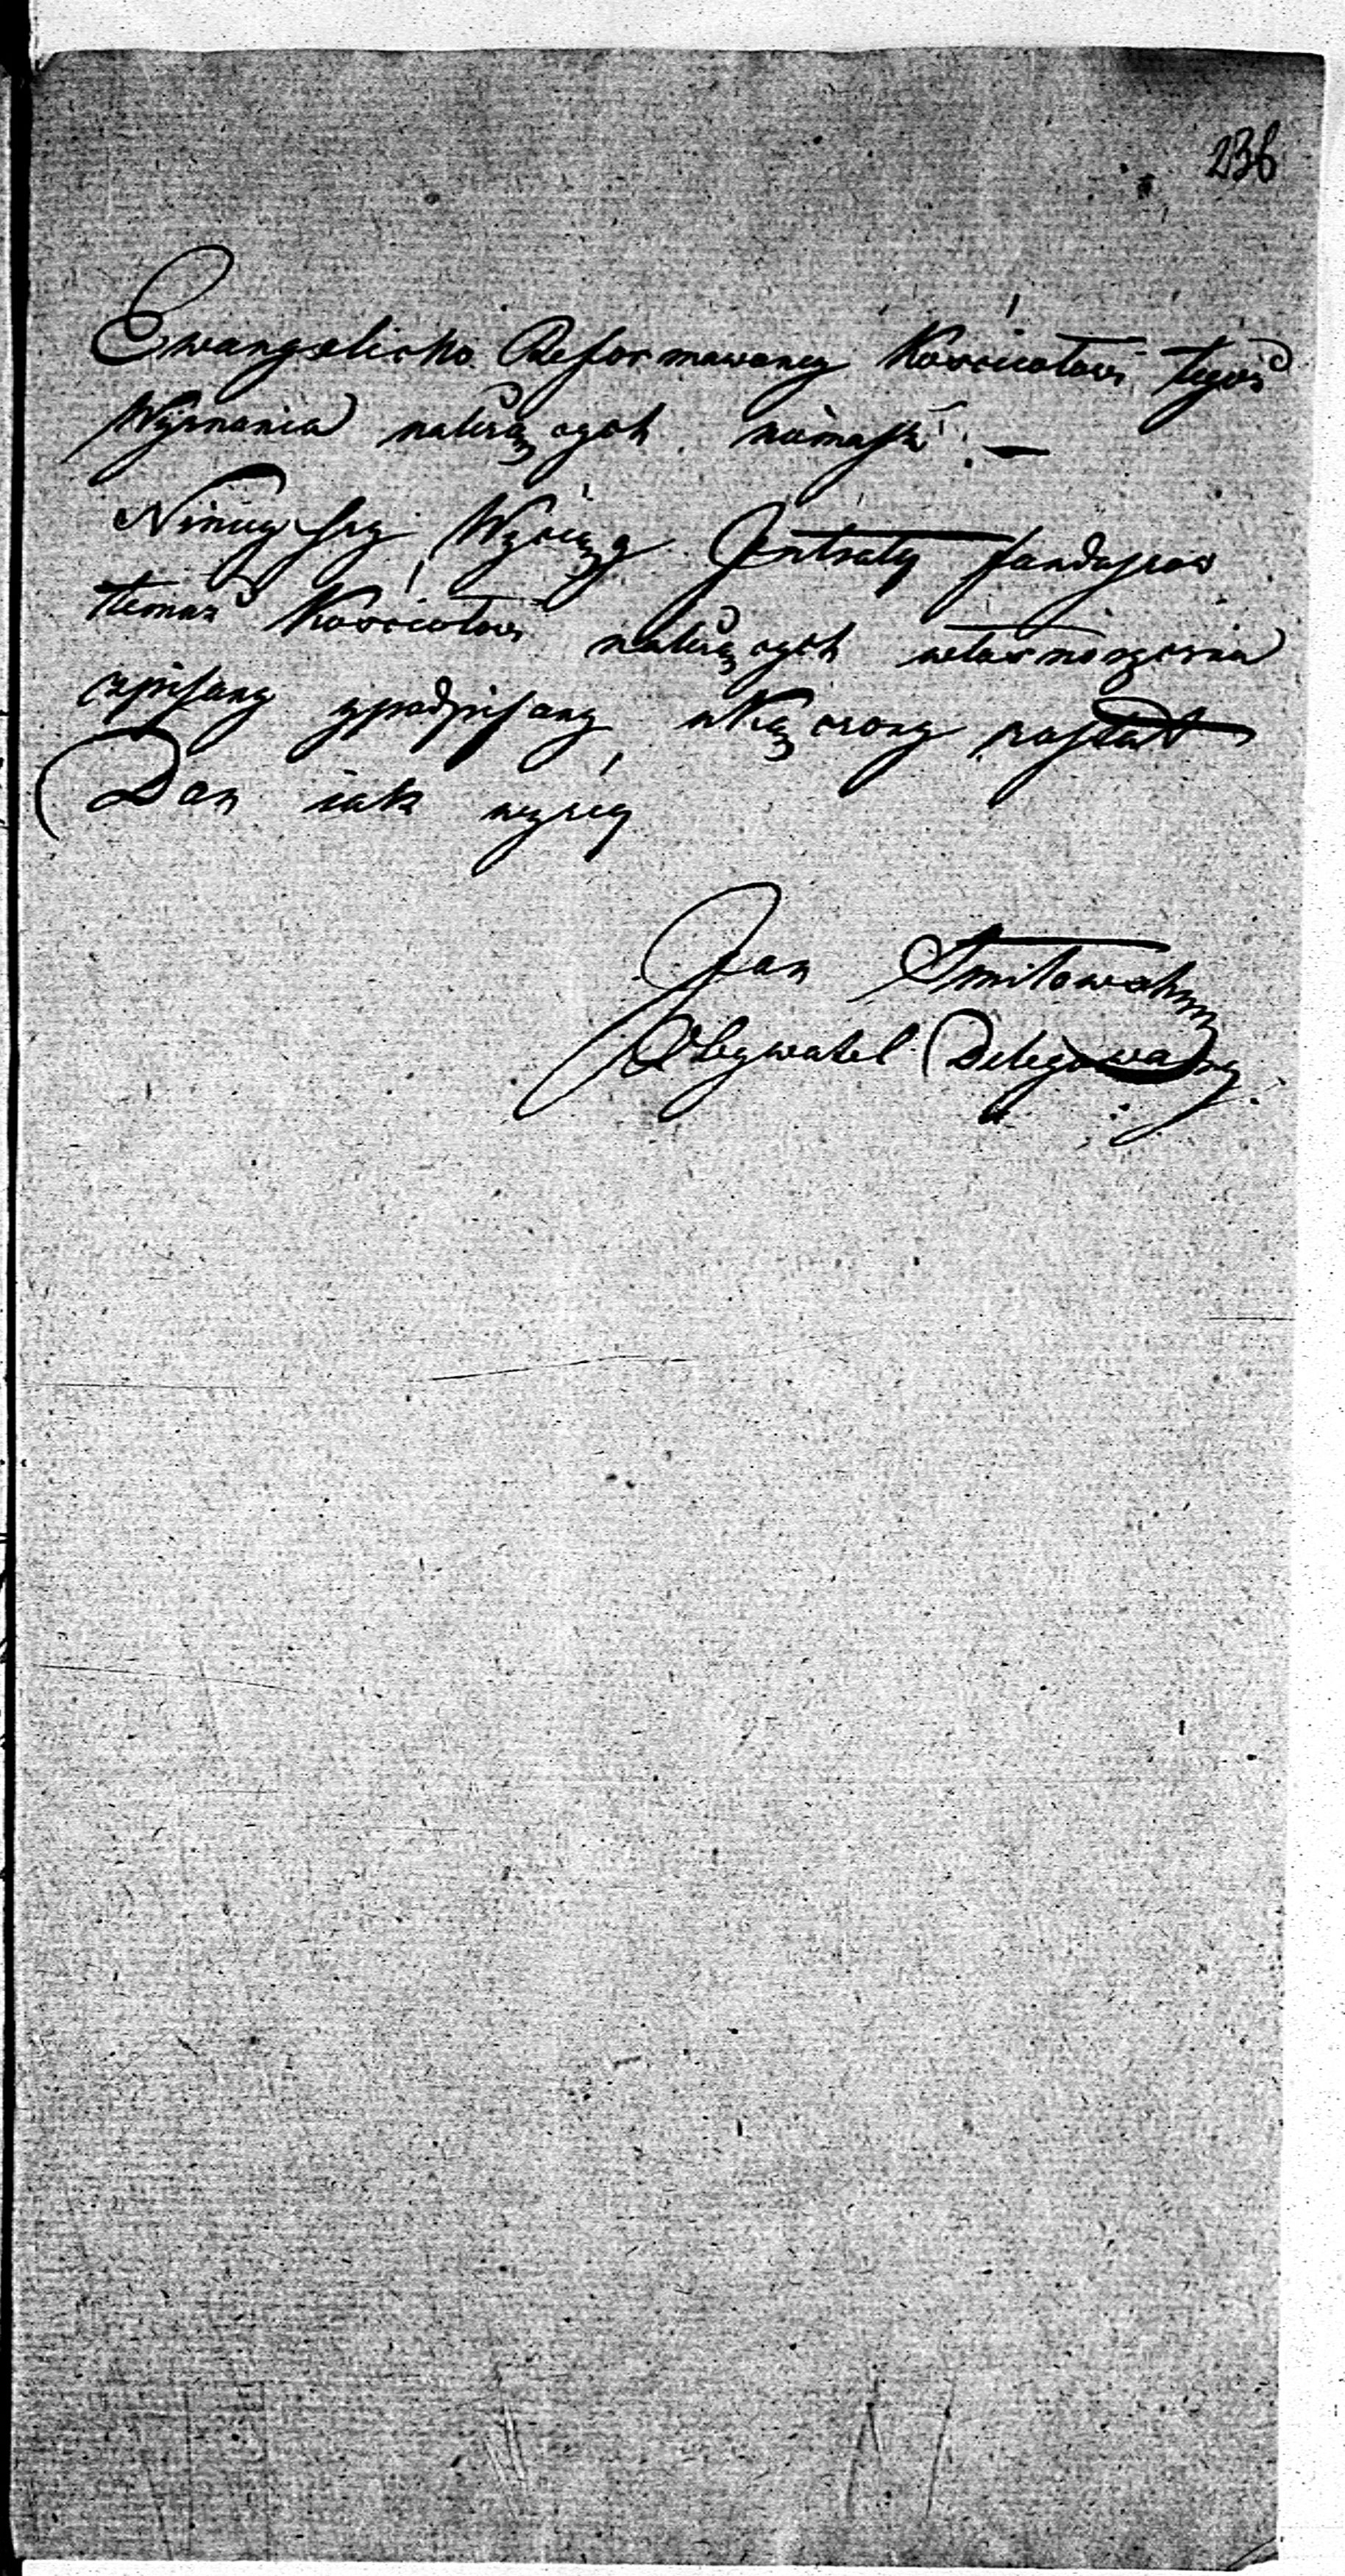 236
Ewangelicko Reformowaney Kościołowi tegoż
Wyznania należących niemasz. —
Ninieyszy Wyciąg Intraty funduszow
temuż Kościołowi należących własnoręcznie
spisany y podpisany ukączony został
Dan iak wyżey
Jan
Obywatel Delegowany.